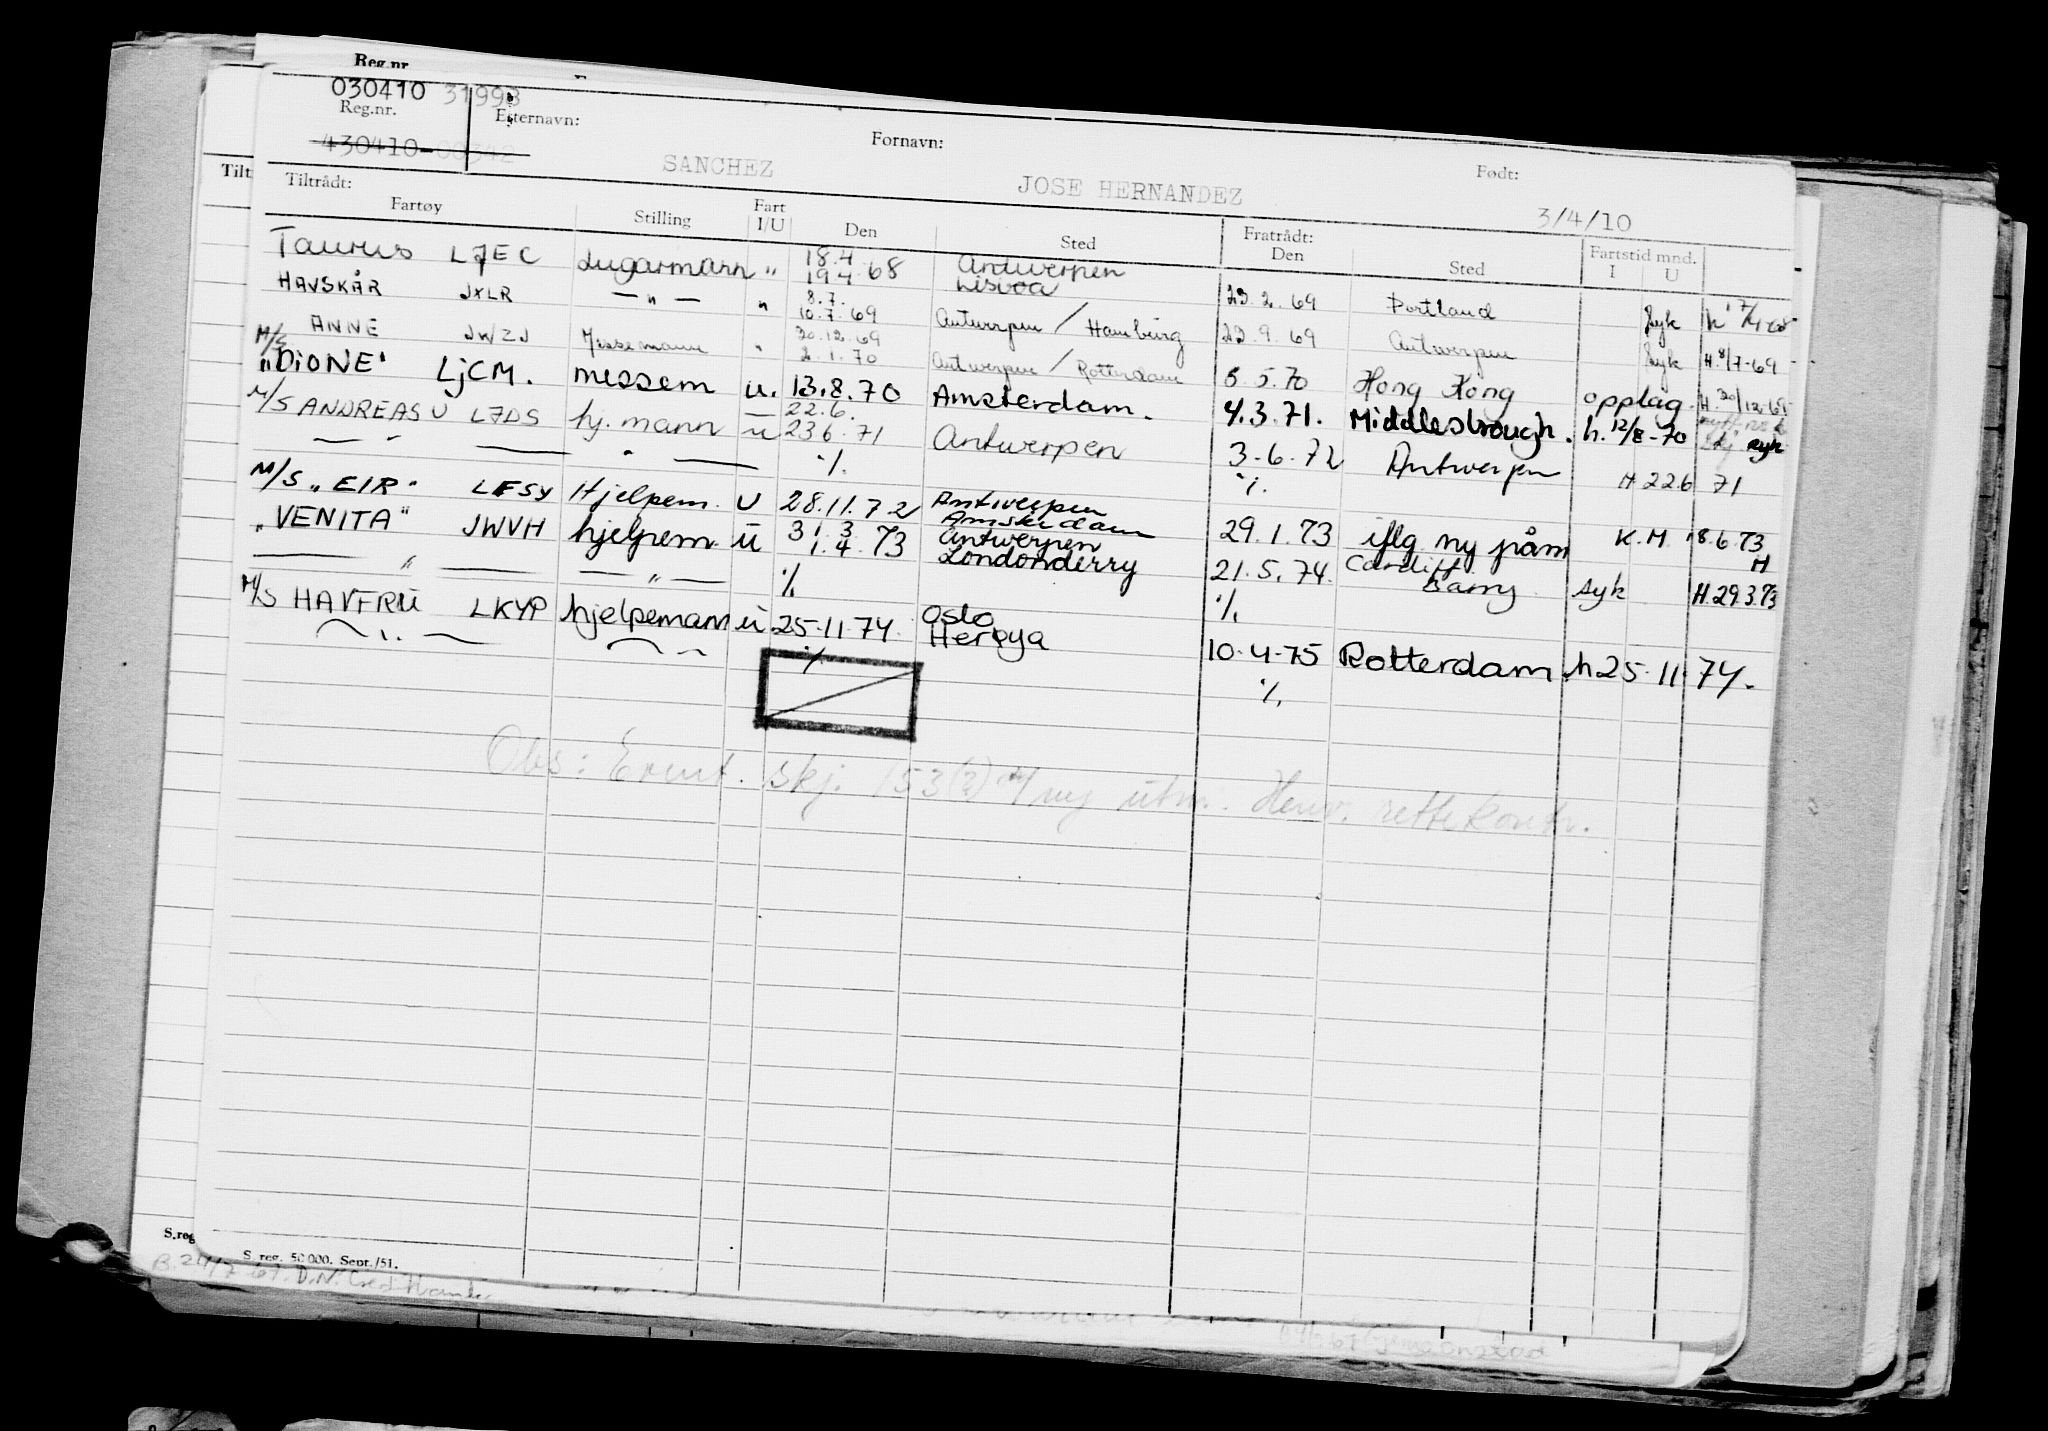 Reg.nr.
030410 31998
Reg.nr. Etternavn: Fornavn: Født:
430410-00342 SANCHEZ JOSE HERNANDEZ 3/4/10
Tiltrådt: Fratrådt: Fartstid mnd.
Fartøy Stilling Fart I/U Den Sted Den Sted I U
Taurus LJEC Lugarmann " 18.4 19.4.68 Antwerpen Lisboa 23.2.69 Portland syk h 17/4-68
HAVSKÅR JXLR — " — " 8.7. 10.7.69 Antwerpen / Hamburg 23.9.69 Antwerpen syk H.8/7-69
M/S ANNE JWZJ Messemann " 30.12.69 2.1.70 Antwerpen / Rotterdam 8.5.70 Hong Kong opplag H.30/12-69
"DIONE" LJCM. messem u. 13.8.70 Amsterdam. 4.3.71. Middlesbrough. h.12/8-70 syk
M/S ANDREAS U LJDS hj.mann u 22.6. 23.6.71 Antwerpen 3.6.72 Antwerpen H 22.6 71
— " — — " — ./. ./.
M/S "EIR" LFSY Hjelpem. U 28.11.72 Antwerpen Amsterdam 29.1.73 iflg ny påm K.M. 18.6.73
"VENITA" JWVH hjelpem. u 31.3 1.4.73 Antwerpen Londonderry 21.5.74. Cardiff Barry syk H H.29.3.73
— " — — " — ./. ./.
M/S HAVFRU LKYP hjelpemann u 25.11.74. Oslo Herøya 10.4.75 Rotterdam h.25.11.74.
— " — — " — ./. ./.
Obs: Event. skj. 153(2) m/ny utm. Henv. rettekontr.
S. reg. 50.000. Sept./51.